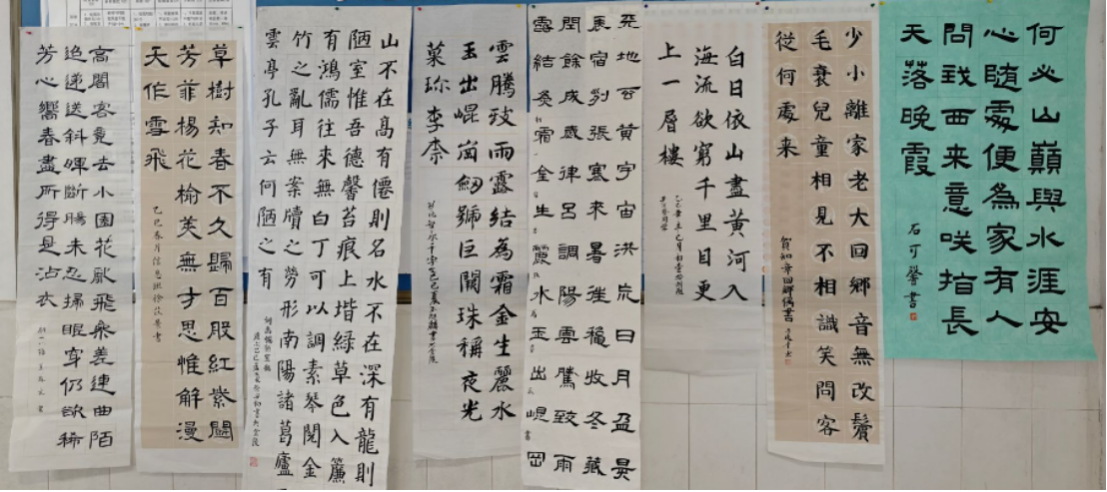 何必山巔與水涯安
心隨處便為家有人
問我西來意咲指長
天落晚霞
石可馨書
少小離家老大回鄉音無改鬢
毛衰兒童相見不相識笑問客
從何處來
賀知章回鄉偶書
白日依山盡黃河入
海流欲窮千里目更
上一層樓
天地玄黃宇宙洪荒日月盈昃
辰宿列張寒來暑往秋收冬藏
閏餘成歲律呂調陽雲騰致雨
露結為霜金生麗水玉出崐岡
雲騰致雨露結為霜金生麗水
玉出崐岡劒號巨闕珠稱夜光
菓珍李柰
山不在高有僊則名水不在深有龍則
陋室惟吾德馨苔痕上堦綠草色入簾
有鴻儒往來無白丁可以調素琴閱金
竹之亂耳無案牘之勞形南陽諸葛廬
雲亭孔子云何陋之有
草樹知春不久歸百般紅紫鬭
芳菲楊花榆莢無才思惟解漫
天作雪飛
高閣客竟去小園花亂飛參差連曲陌
迢遞送斜暉斷腸未忍掃眼穿仍欲稀
芳心嚮春盡所得是沾衣